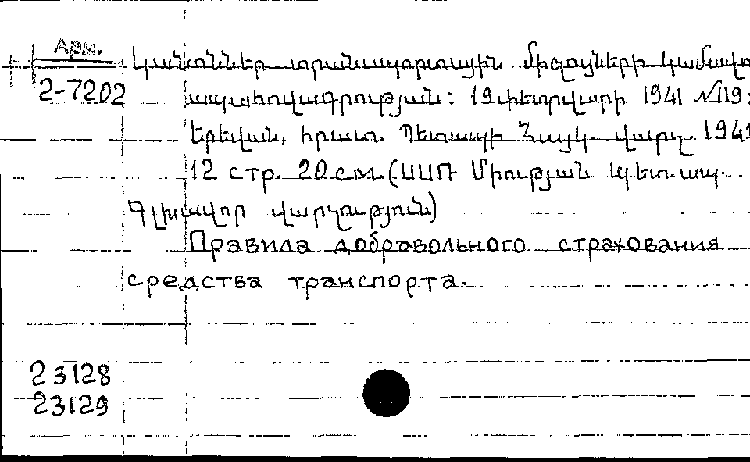 Арм.
2-7202
Կանոններ տրանսպորտային միջոցների կամավոր
ապահովագրության: 19 փետրվարի 1941 №119:
Երեվան, հրատ. Պետապի Հայկ. վարչ. 1941
12 стр. 20 см. (ՍՍՌ Միության պետապ
Գլխավոր վարչություն)
Правила добровольного страхования
средства транспорта.
23128
23129